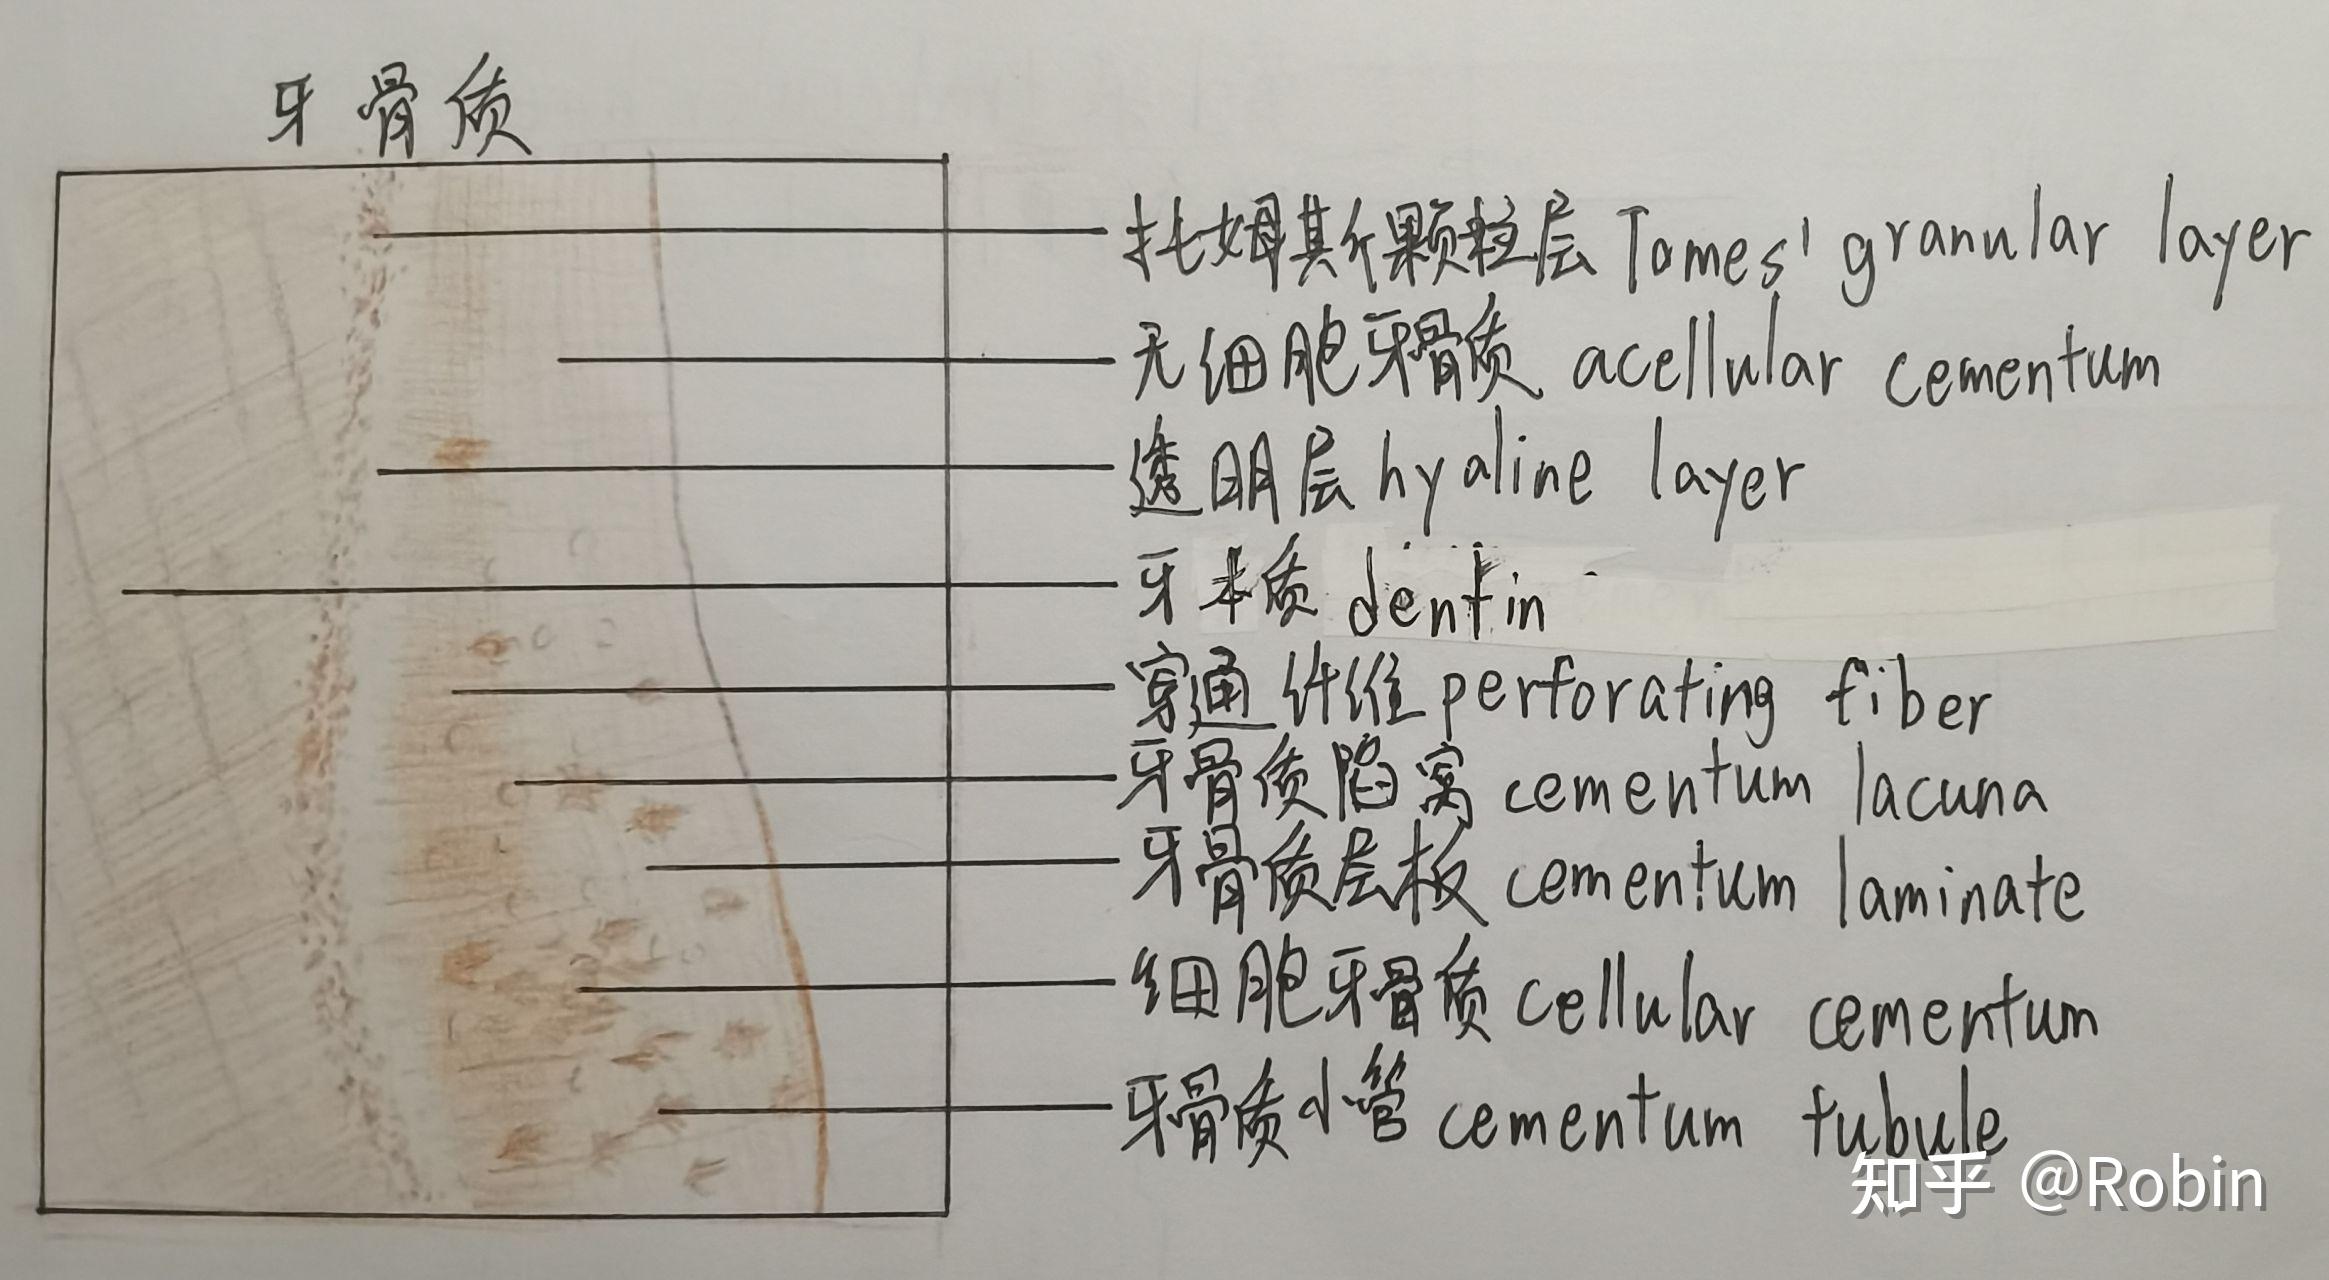 牙骨质
托姆斯颗粒层 Tomes' granular layer
无细胞牙骨质 acellular cementum
透明层 hyaline layer
牙本质 dentin
穿通纤维 perforating fiber
牙骨质陷窝 cementum lacuna
牙骨质层板 cementum laminate
细胞牙骨质 cellular cementum
牙骨质小管 cementum tubule
知乎 @Robin